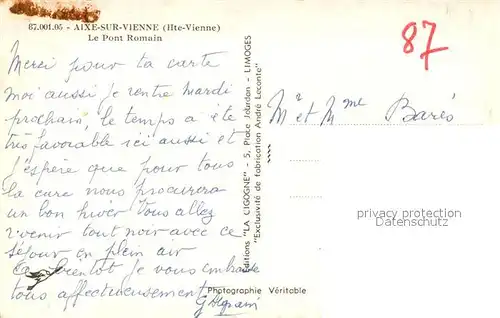 87.001.05 - AIXE-SUR-VIENNE (Hte-Vienne)
Le Pont Romain
87
Merci pour ta carte
moi aussi je rentre mardi
prochain, le temps a été
très favorable ici aussi et
j'espère que pour tous
la cure nous procurera
un bon hiver Vous allez
revenir tout noir avec ce
séjour en plein air
bientôt je vous embrasse
tous affectueusement
Mr et Mme Barès
Editions "LA CIGOGNE" - 5, Place Jourdan - LIMOGES
"Exclusivité de fabrication André Leconte"
Photographie Véritable
privacy protection
Datenschutz